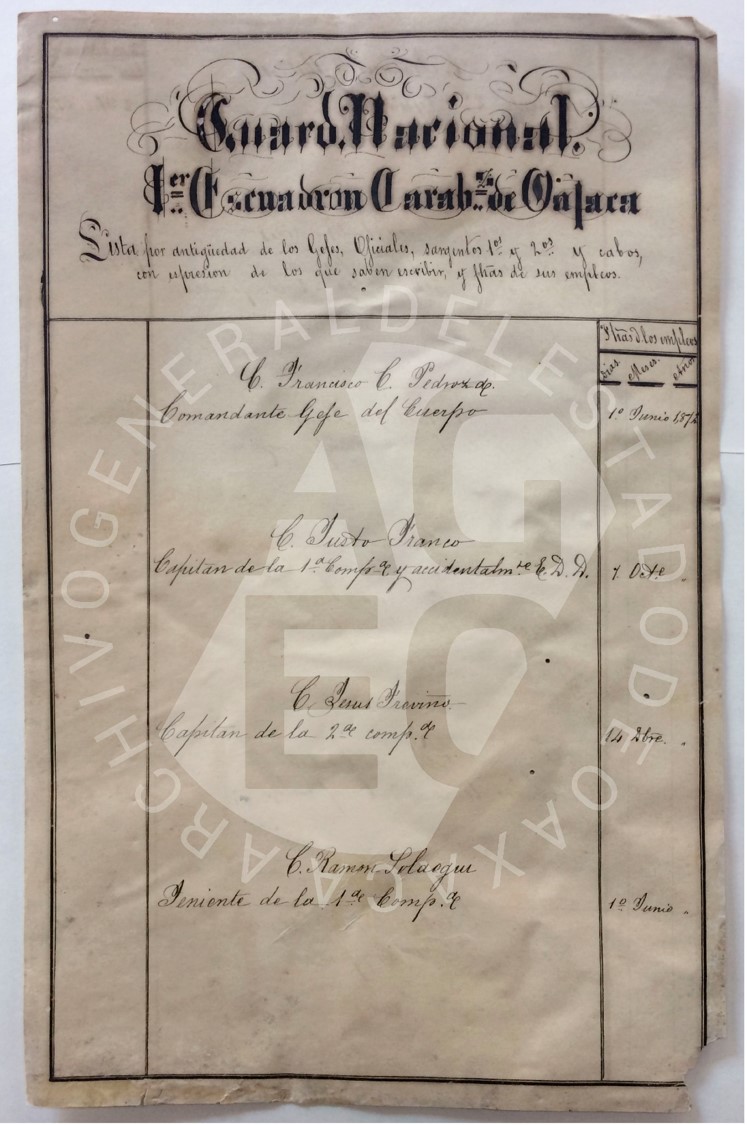 Guard. Nacional.
1er Escuadron Carabs. de Oajaca
Lista por antigüedad de los Gefes, Oficiales, sargentos 1os y 2os y cabos,
con espresion de los que saben escribir, y fhas de sus empleos.
Fhas d. los empleos
dias. Meses. años
C. Francisco C. Pedroza.
Comandante Gefe del Cuerpo 1o Junio 1,872
C. Justo Franco
Capitan de la 1a Comp.a y accidentalm.te E. D. D. 7 Octe "
C. Jesus Treviño.
Capitan de la 2a comp.a 14 "
C. Ramon
Teniente de la 1a Comp.a 1o Junio "
ARCHIVO GENERAL DEL ESTADO DE OAXACA
AGEO